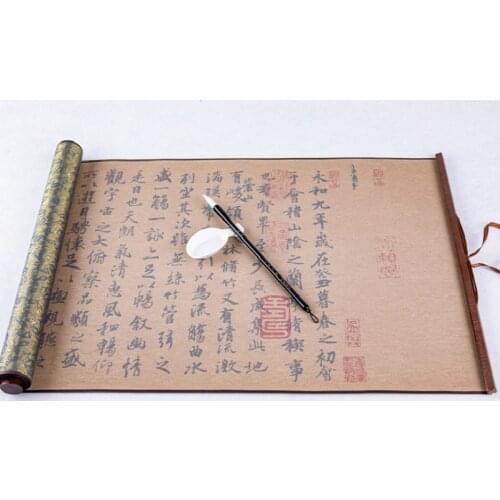 永和九年歲在癸丑暮春之初會
于會稽山陰之蘭脩稧事
也羣賢畢至少長咸集此地
有崇山峻領脩竹又有清流激
湍暎引以為流觴曲水
列坐其次雖無絲竹管弦之
盛一觴一詠亦足以暢敘幽情
是日也天朗氣清惠風和暢仰
觀宇宙之大俯察品類之盛
以遊目騁懷足以極視